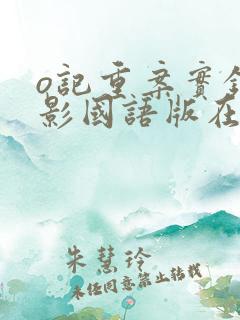 o記重案實錄
影國語版在
朱慧玲
未經同意禁止轉載